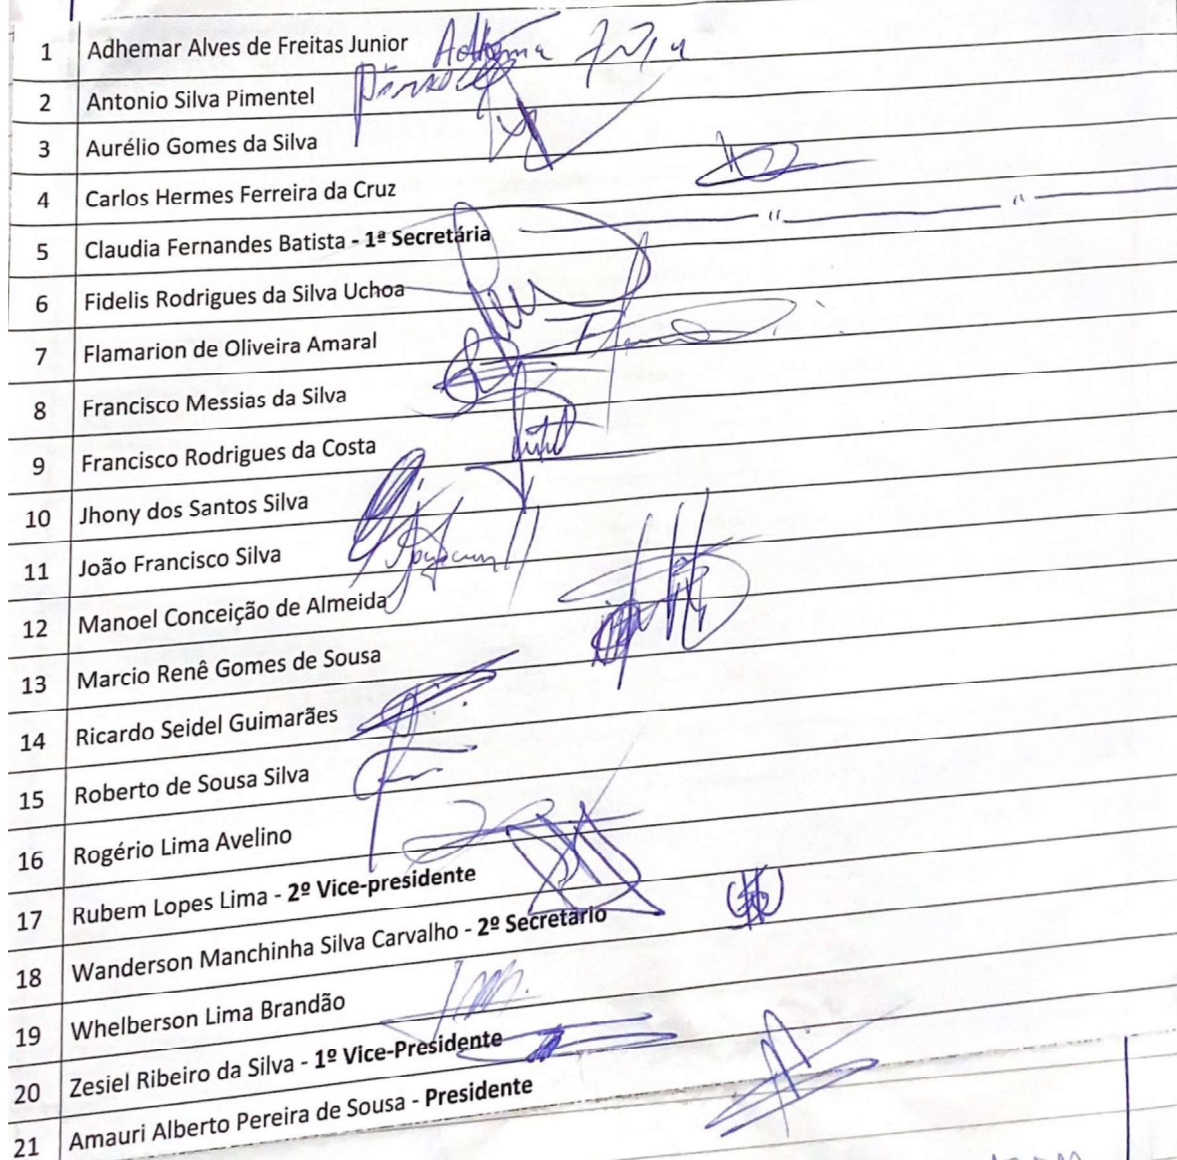 1 Adhemar Alves de Freitas Junior Adhema
2 Antonio Silva Pimentel
3 Aurélio Gomes da Silva
4 Carlos Hermes Ferreira da Cruz
5 Claudia Fernandes Batista - 1ª Secretária
6 Fidelis Rodrigues da Silva Uchoa
7 Flamarion de Oliveira Amaral
8 Francisco Messias da Silva
9 Francisco Rodrigues da Costa
10 Jhony dos Santos Silva
11 João Francisco Silva
12 Manoel Conceição de Almeida
13 Marcio Renê Gomes de Sousa
14 Ricardo Seidel Guimarães
15 Roberto de Sousa Silva
16 Rogério Lima Avelino
17 Rubem Lopes Lima - 2º Vice-presidente
18 Wanderson Manchinha Silva Carvalho - 2º Secretário
19 Whelberson Lima Brandão
20 Zesiel Ribeiro da Silva - 1º Vice-Presidente
21 Amauri Alberto Pereira de Sousa - Presidente